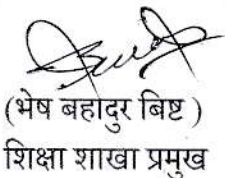 (भेष बहादुर बिष्ट )
शिक्षा शाखा प्रमुख